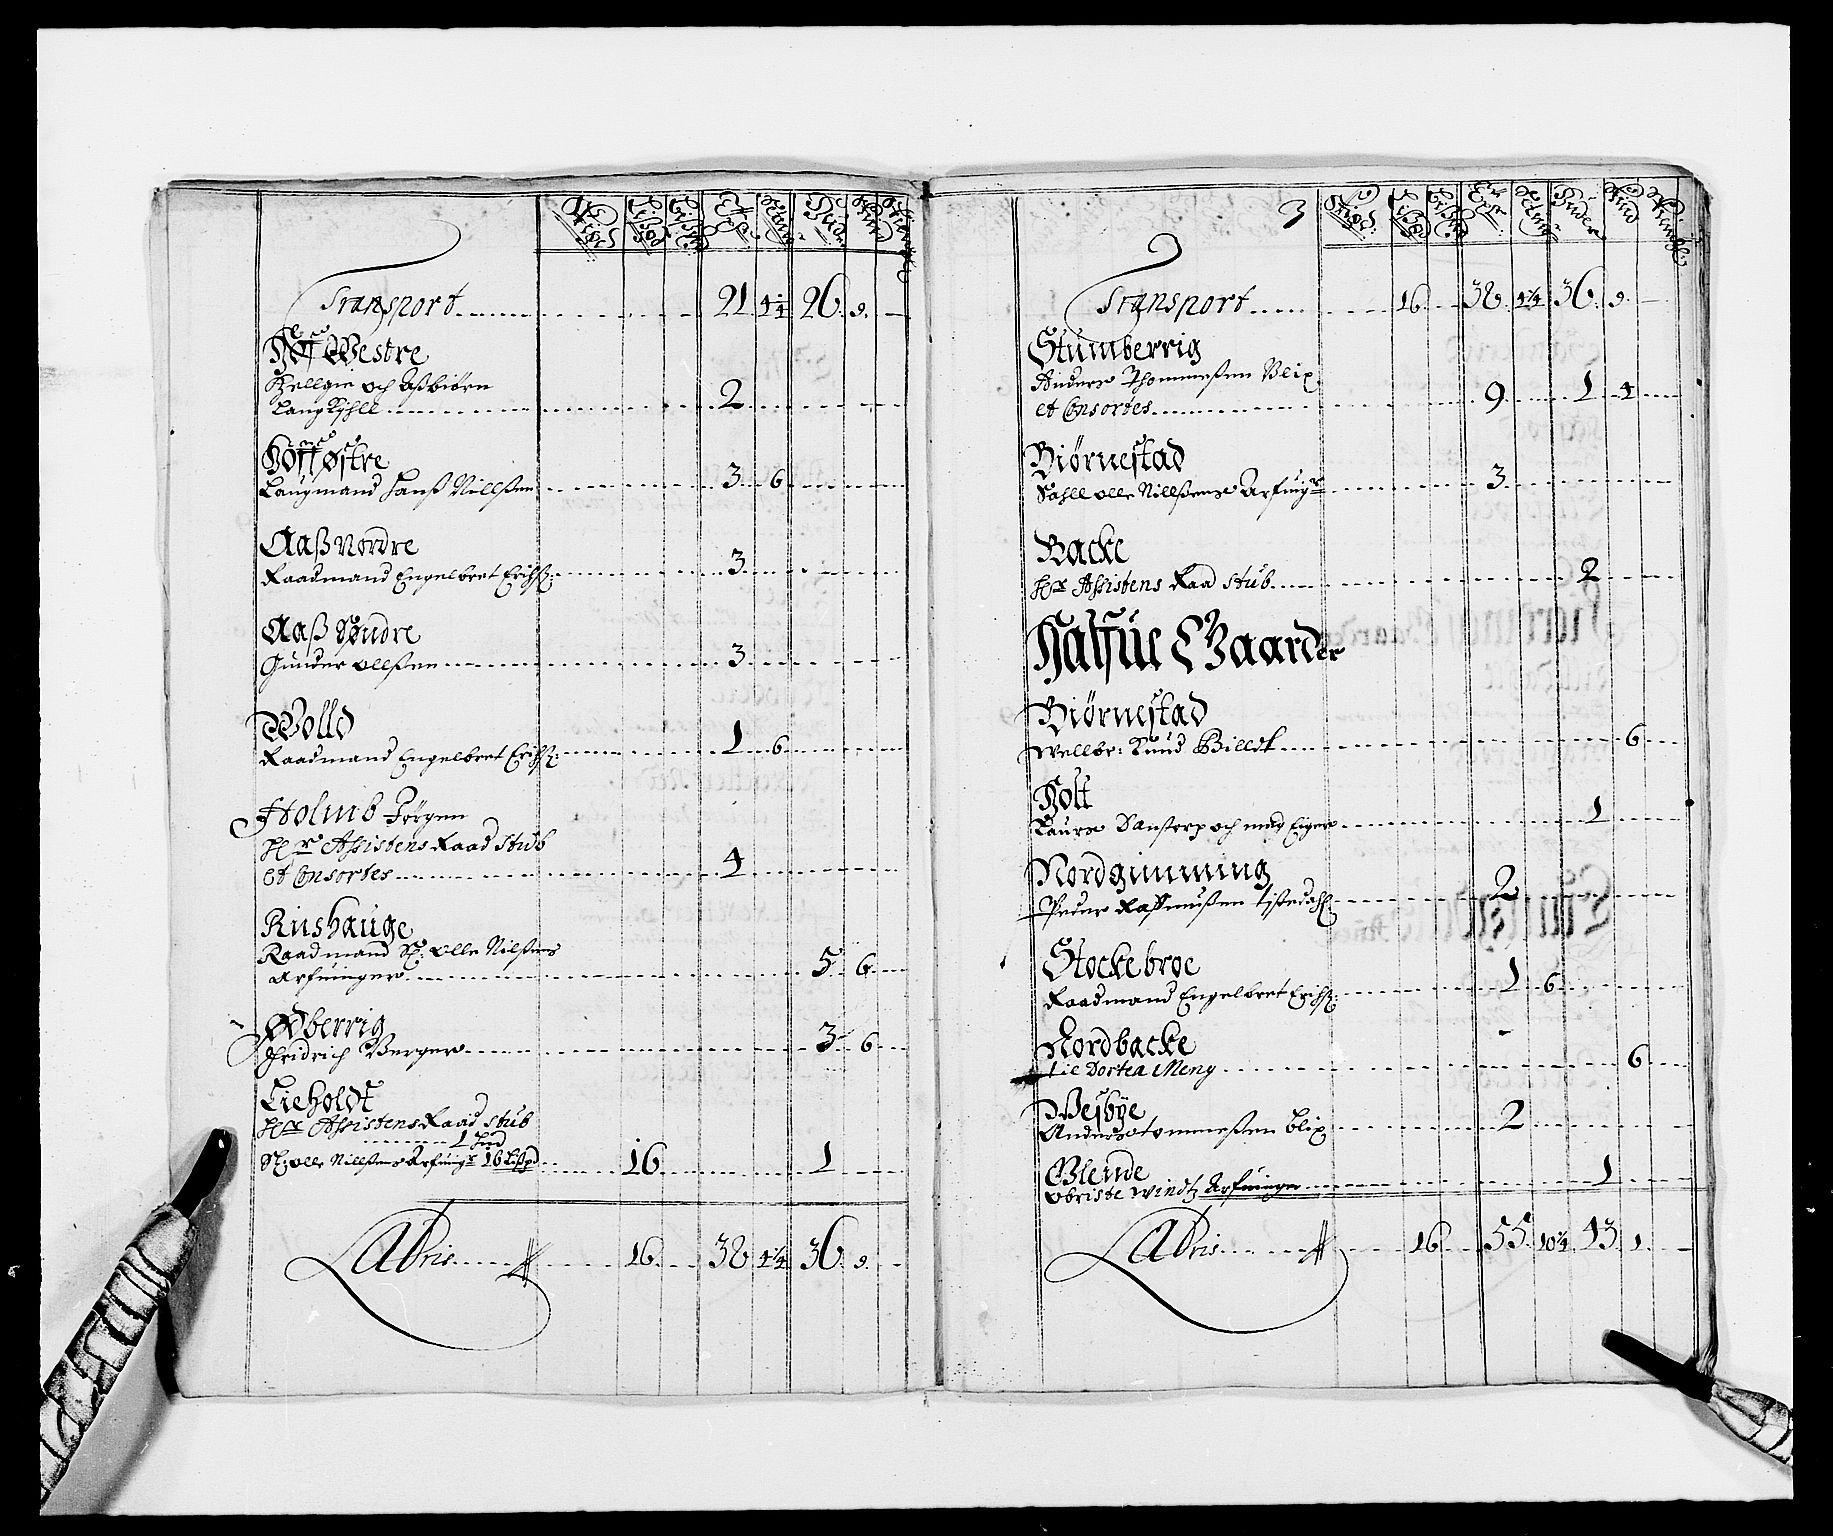 Transport 21 4¼ 26 9
Hoff Westre
Kellgie och Aßbiørn
Lang Kihll 2
Hoff østre
Laugmand Hanß Nillßen 3 6
Aaß Nordre
Raadmand Engelbret Erichß: 3
Aaß Søndre
Gunder ollßen 3
Wolld
Raadmand Engelbret Erichß: 1 6
Holmb Jørgen
Hr Assistens Raad Stub
et Consortes 4
Riishauge
Raadmand Sl: olle Nilßens
Arfuinger 5 6
Ødberrig
Fridrich Verger 3 6
Lieholdt
Hr Assistens Raad Stub
1 Hud
Sl: olle Nillßens Arfuingr 16 Lißpd 16 1
Labris 16 38 4¼ 36 9
3
Transport 16 38 4¼ 36 9
Stumberrig
Anders Thommeßen Blix
et Consortes 9 1 4
Biørnestad
Sahll olle Nillßens Arfuingr 3
Backe
Hr Assistens Raad Stub 2
Halfue Gaarder
Biørnestad
Wellbr: Knud Billdt 6
Holt
Laurs och med Eigere 1
Nordgimming
Peder Rassmußen Tistedahl 2
Stockebroe
Raadmand Engelbret Erichß: 1 6
Nordbacke
Lie Dortea Meng 6
Wesbye
Anders tommeßen blix 2
Blende
obriste Windtz Arfuinger 1
Labris 16 55 10¼ 43 1